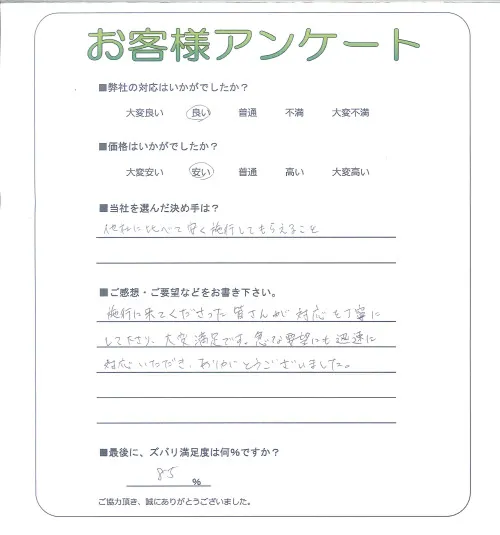 お客様アンケート
■弊社の対応はいかがでしたか？
大変良い 良い 普通 不満 大変不満
■価格はいかがでしたか？
大変安い 安い 普通 高い 大変高い
■当社を選んだ決め手は？
他社に比べて安く施行してもらえること
■ご感想・ご要望などをお書き下さい。
施行に来てくださった皆さんが対応を丁寧に
して下さり、大変満足です。急な要望にも迅速に
対応いただき、ありがとうございました。
■最後に、ズバリ満足度は何%ですか？
85 %
ご協力頂き、誠にありがとうございました。